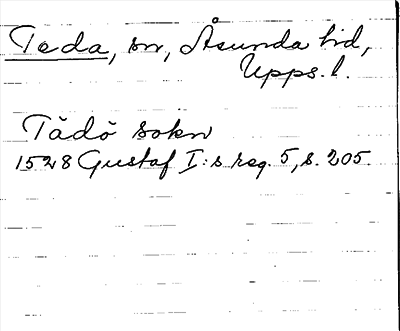 Teda, sn, Åsunda hd,
Upps. l.
Tådö sokn
1528 Gustaf I:s reg. 5, s. 205.